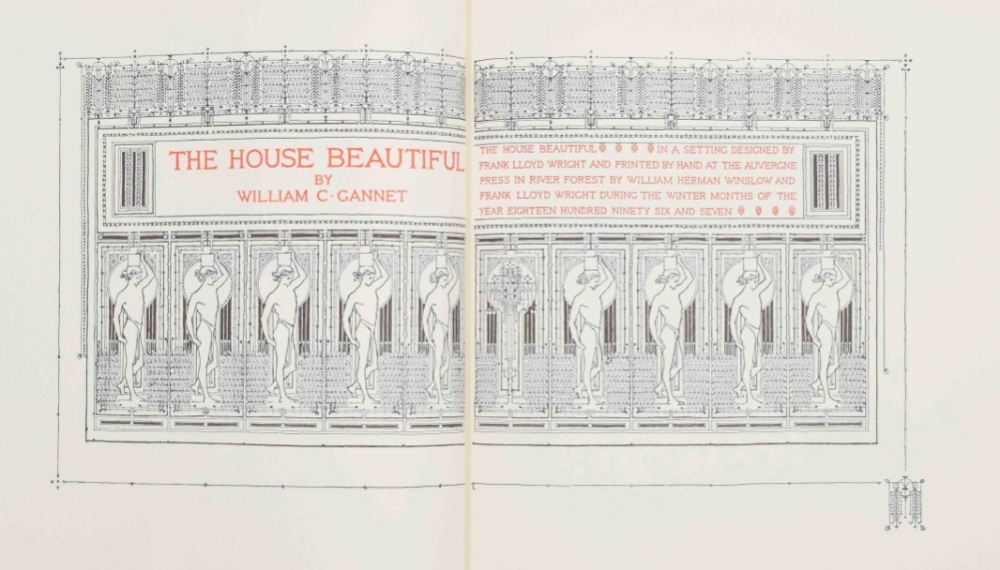 THE HOUSE BEAUTIFUL
BY
WILLIAM C·GANNET
THE HOUSE BEAUTIFUL IN A SETTING DESIGNED BY
FRANK LLOYD WRIGHT AND PRINTED BY HAND AT THE AUVERGNE
PRESS IN RIVER FOREST BY WILLIAM HERMAN WINSLOW AND
FRANK LLOYD WRIGHT DURING THE WINTER MONTHS OF THE
YEAR EIGHTEEN HUNDRED NINETY SIX AND SEVEN